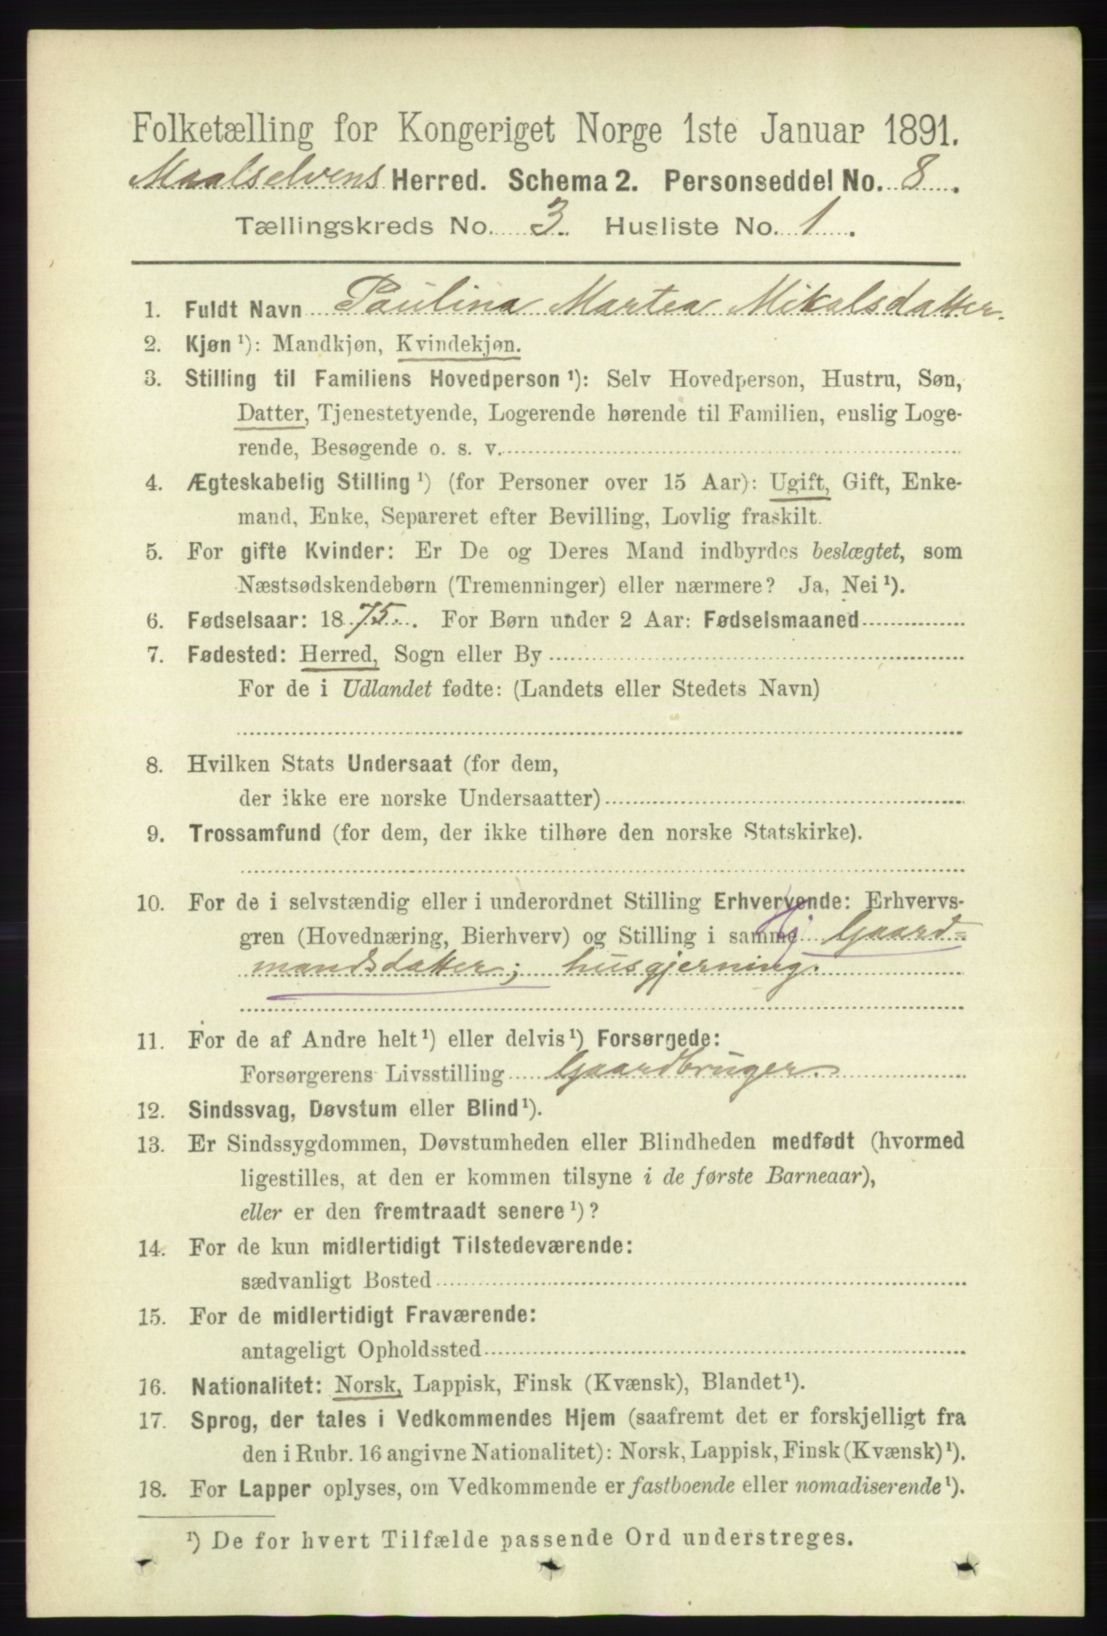 Folketælling for Kongeriget Norge 1ste Januar 1891.
Maalselvens Herred. Schema 2. Personseddel No. 8.
Tællingskreds No. 3. Husliste No. 1.
1. Fuldt Navn Paulina Martea Mikalsdatter.
2. Kjøn ¹): Mandkjøn, Kvindekjøn.
3. Stilling til Familiens Hovedperson ¹): Selv Hovedperson, Hustru, Søn,
Datter, Tjenestetyende, Logerende hørende til Familien, enslig Loge-
rende, Besøgende o. s. v.
4. Ægteskabelig Stilling ¹) (for Personer over 15 Aar): Ugift, Gift, Enke-
mand, Enke, Separeret efter Bevilling, Lovlig fraskilt.
5. For gifte Kvinder: Er De og Deres Mand indbyrdes beslægtet, som
Næstsødskendebørn (Tremenninger) eller nærmere? Ja, Nei ¹).
6. Fødselsaar: 1875. For Børn under 2 Aar: Fødselsmaaned
7. Fødested: Herred, Sogn eller By
For de i Udlandet fødte: (Landets eller Stedets Navn)
8. Hvilken Stats Undersaat (for dem,
der ikke ere norske Undersaatter)
9. Trossamfund (for dem, der ikke tilhøre den norske Statskirke).
10. For de i selvstændig eller i underordnet Stilling Erhvervende: Erhvervs-
gren (Hovednæring, Bierhverv) og Stilling i samme Gaard-
mandsdatter; husgjerning.
11. For de af Andre helt ¹) eller delvis ¹) Forsørgede:
Forsørgerens Livsstilling Gaardbruger.
12. Sindssvag, Døvstum eller Blind ¹).
13. Er Sindssygdommen, Døvstumheden eller Blindheden medfødt (hvormed
ligestilles, at den er kommen tilsyne i de første Barneaar),
eller er den fremtraadt senere ¹)?
14. For de kun midlertidigt Tilstedeværende:
sædvanligt Bosted
15. For de midlertidigt Fraværende:
antageligt Opholdssted
16. Nationalitet: Norsk, Lappisk, Finsk (Kvænsk), Blandet ¹).
17. Sprog, der tales i Vedkommendes Hjem (saafremt det er forskjelligt fra
den i Rubr. 16 angivne Nationalitet): Norsk, Lappisk, Finsk (Kvænsk) ¹).
18. For Lapper oplyses, om Vedkommende er fastboende eller nomadiserende ¹).
¹) De for hvert Tilfælde passende Ord understreges.